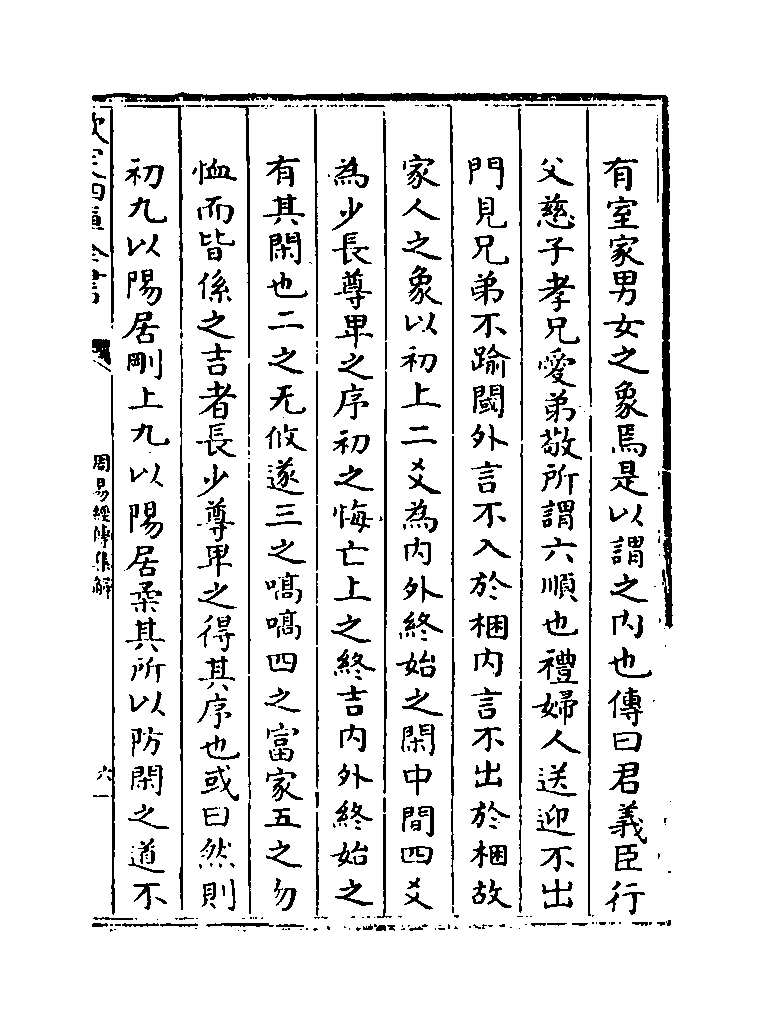 有室家男女之象焉是以謂之内也傳曰君義臣行
父慈子孝兄愛弟敬所謂六順也禮婦人送迎不出
門見兄弟不踰閾外言不入於梱内言不出於梱故
家人之象以初上二爻為内外終始之閑中間四爻
為少長尊卑之序初之悔亡上之終吉内外終始之
有其閑也二之无攸遂三之嗃嗃四之富家五之勿
恤而皆係之吉者長少尊卑之得其序也或曰然則
初九以陽居剛上九以陽居柔其所以防閑之道不
欽定四庫全書
周易經傳集解
六